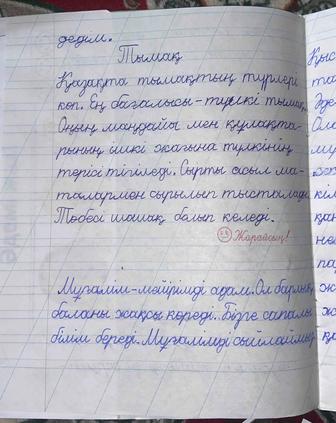 дедім.
Тымақ
Қазақта тымақтың түрлері
көп. Ең бағалысы-түлкі тымақ.
Оның маңдайы мен құлақта-
рының ішкі жағына түлкінің
терісі тігіледі. Сырты асыл ма-
талармен сырылып тысталады.
Төбесі шошақ болып келеді.
Жарайсың!
Мұғалім-мейірімді адам. Ол барлық
баланы жақсы көреді. Бізге сапалы
білім береді. Мұғалімді сыйлаймыз